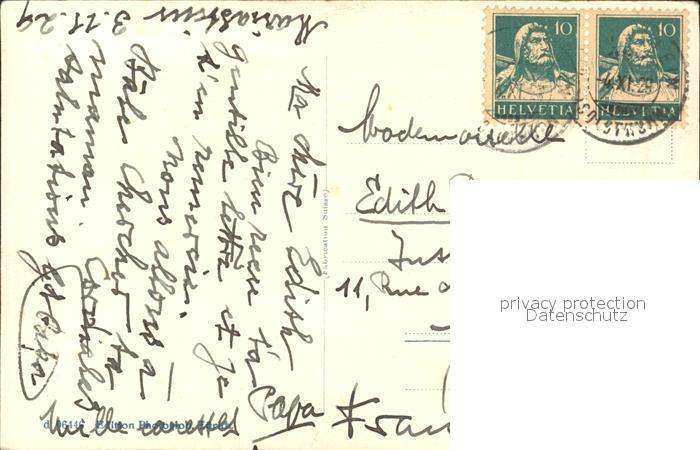 Mariastein 3.XI.29
Ma chère Edith
Bien reçu ta
gentille lettre et je
t'en remercie.
Nous allons à
Bâle chercher ta
maman.
Cordiales
salutations de
Papa
Papa
Mille
10
10
HELVETIA
HELVETIA
XI.29
Mademoiselle
Edith
11, Rue
privacy protection
Datenschutz
Fabrication Suisse
Edition Photoglob, Zürich